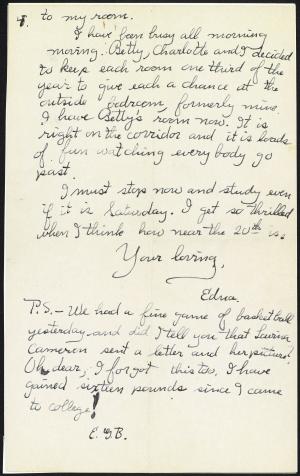 to my room.
I have been busy all morning
moving. Betty, Charlotte and I decided
to keep each room one third of the
year to give each a chance at the
outside bedroom, formerly mine.
I have Betty's room now. It is
right on the corridor and it is loads
of fun watching everybody go
past.
I must stop now and study even
if it is Saturday. I get so thrilled
when I think how near the 20th is.
Your loving,
Edna.
P.S.- We had a fine game of basketball
yesterday and did I tell you that
Cameron sent a letter and her picture!
Oh dear, I forgot this too, I have
gained sixteen pounds since I came
to college!
E.G.B.